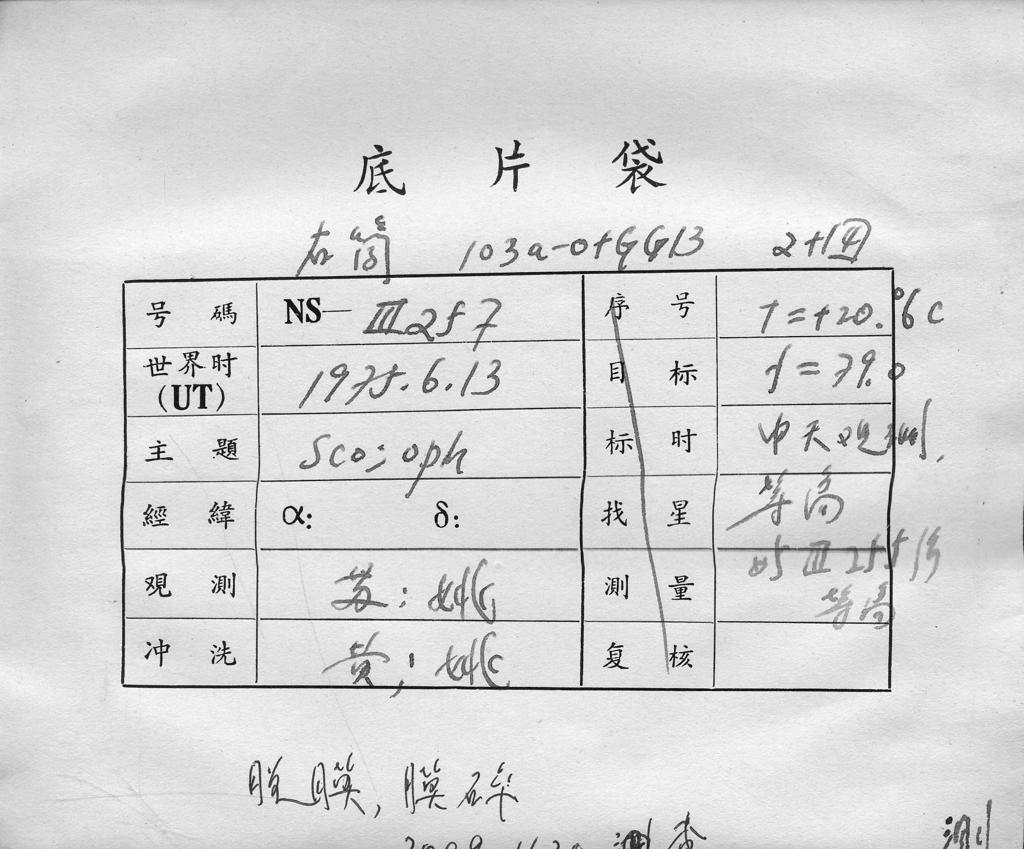 底片袋
右筒 103a-O+GG13 2+1四
号碼 NS— III257 序号 T=+20.°6C
世界时(UT) 1975.6.13 目标 f=79.0
主題 Sco; oph 标时 中天观测,
經緯 α: δ: 找星 等高
观測 苏:姚 測量 与III255片 等高
冲洗 黄;姚 复核
脱膜,膜碎
2009.11.20 测
测